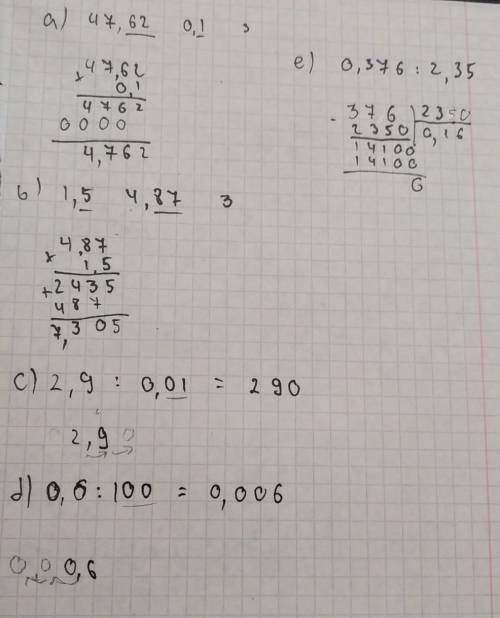 a) 47,62 0,1 3
× 47,62
0,1
4762
0000
4,762
b) 1,5 4,87 3
× 4,87
1,5
+ 2435
487
7,305
c) 2,9 : 0,01 = 290
2,90
d) 0,6 : 100 = 0,006
0,00,6
e) 0,376 : 2,35
- 376 | 2350
2350 | 0,16
14100
14100
0